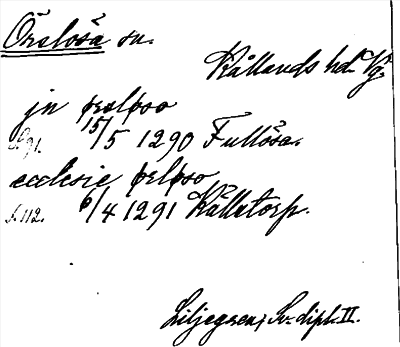 Örslösa sn.
Kållands hd. Vg.
jn þrsløso
S. 91. 15/5 1290 Fullösa.
ecclesie þrløso
S. 112. 6/4 1291 Kållstorp.
Liljegren, Sv. dipl. II.